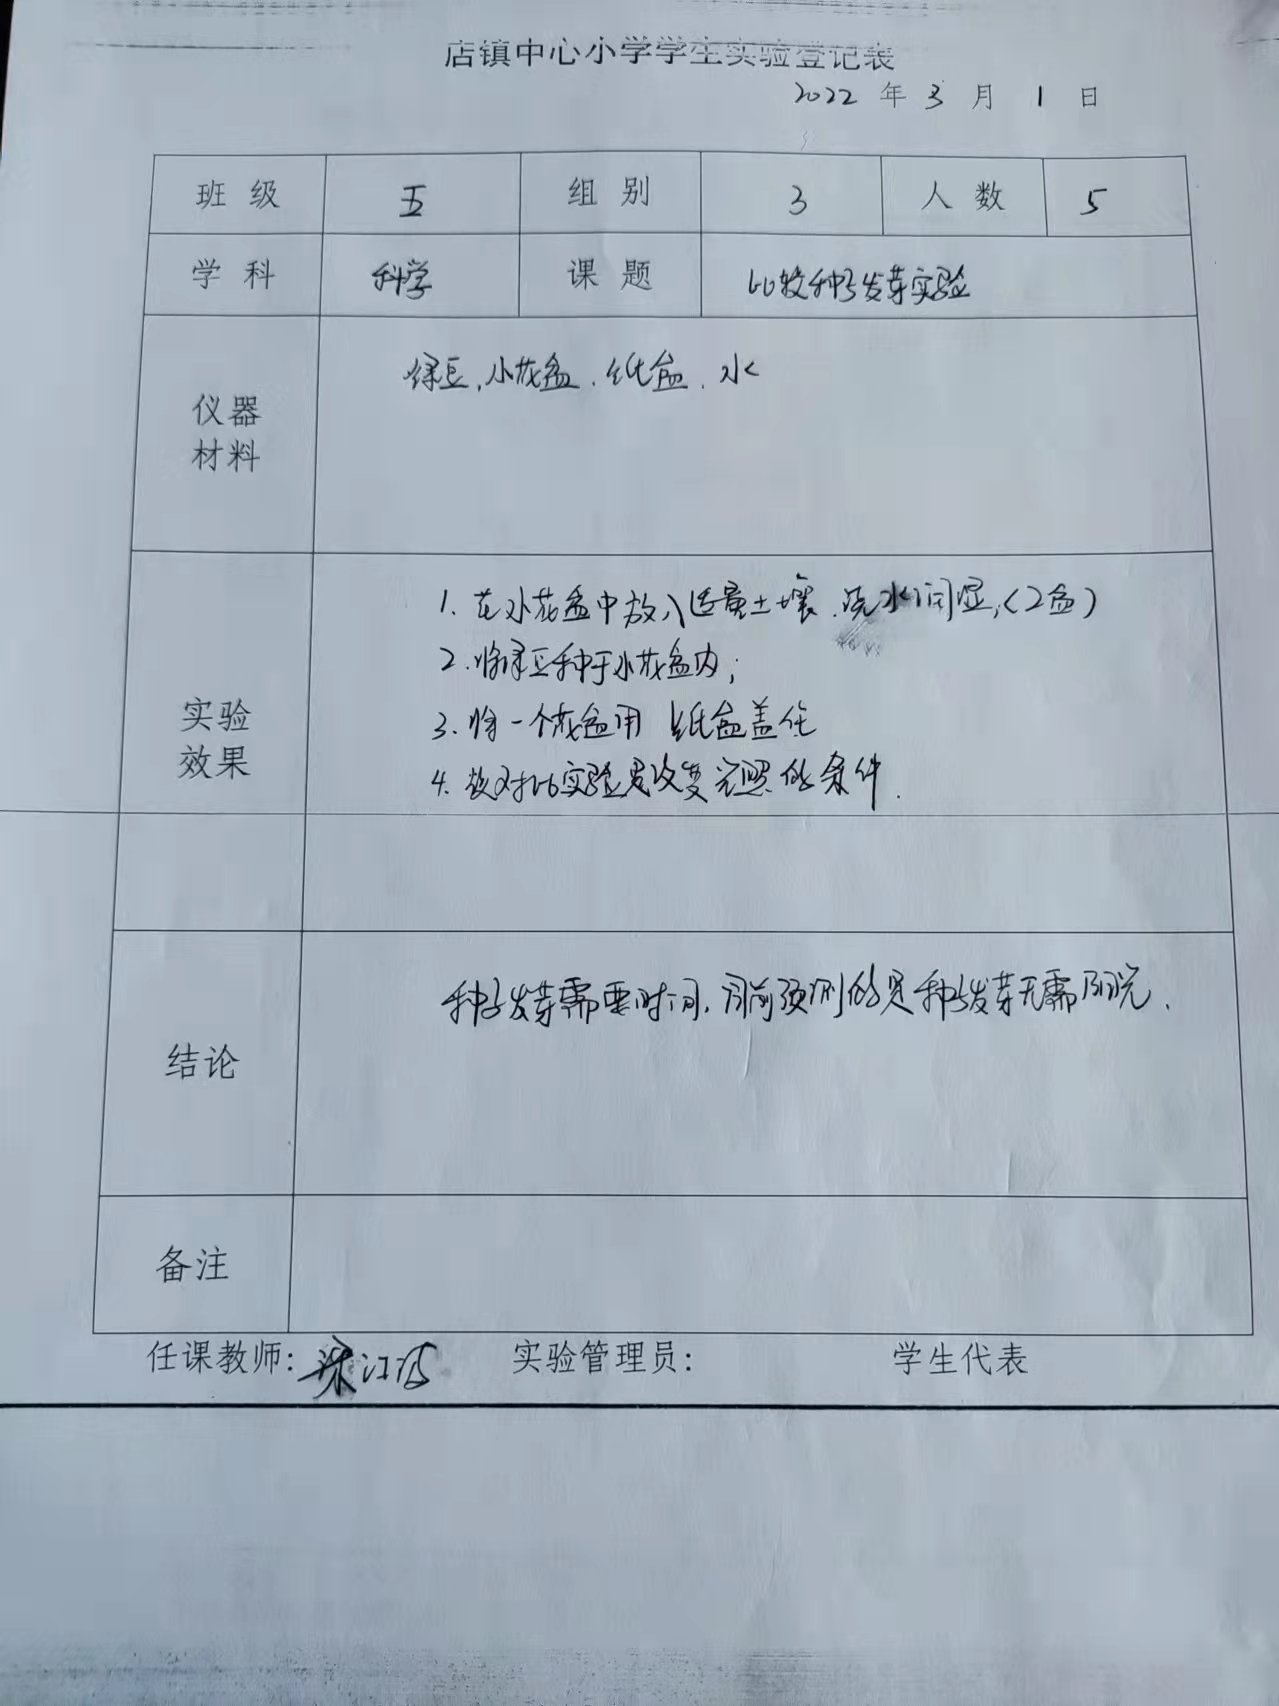 店镇中心小学学生实验登记表
2022 年 3 月 1 日
班级 五 组别 3 人数 5
学科 科学 课题 比较种子发芽实验
仪器材料 绿豆、小花盆、纸盒、水
实验效果
1. 在小花盆中放入适量土壤、浇水润湿,(2盆)
2. 将绿豆种于小花盆内;
3. 将一个花盆用 纸盒盖住
4. 该对比实验是改变光照的条件.
结论 种子发芽需要时间,目前预测的是种子发芽无需阳光.
备注
任课教师: 实验管理员: 学生代表